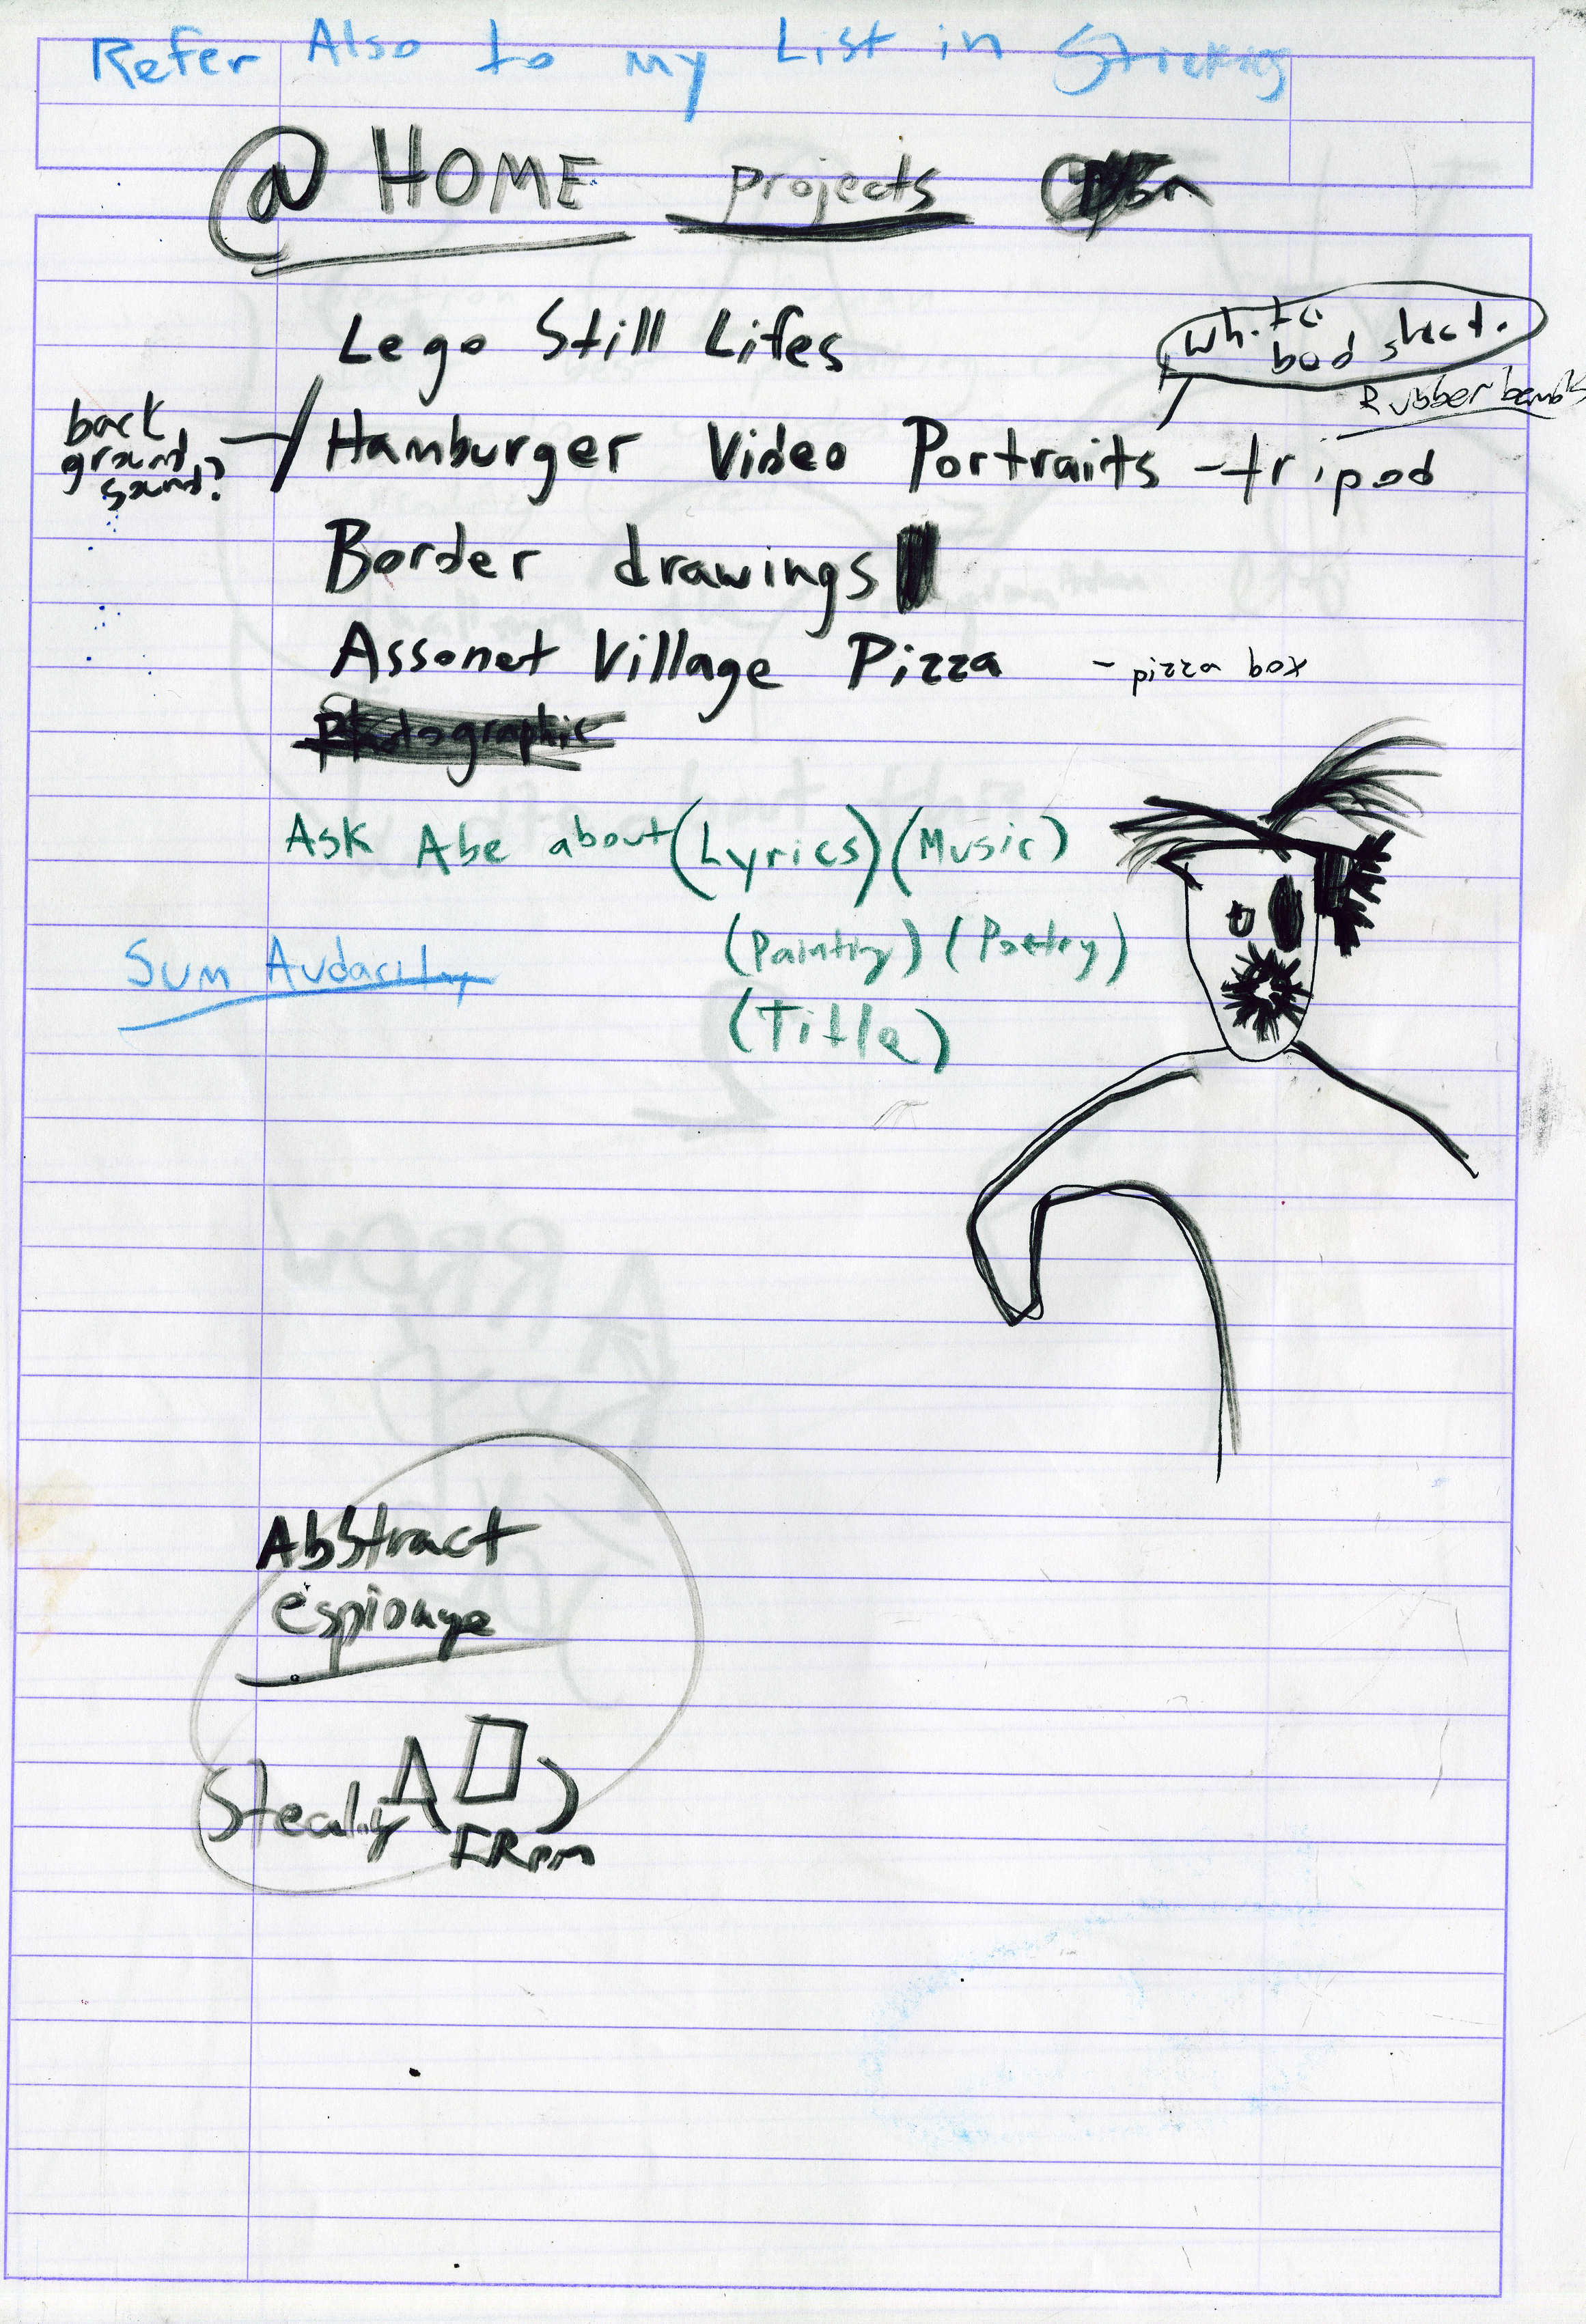 Refer Also to my List in Stickies
@ HOME projects
Lego Still Lifes
white bed sheet.
Rubber bands
back ground sound?
Hamburger Video Portraits - tripod
Border drawings
Assonet Village Pizza - pizza box
Photographic
Ask Abe about (Lyrics) (Music)
(Painting) (Poetry)
Sum Audacity
(Title)
Abstract
espionage
Stealing A
FRom